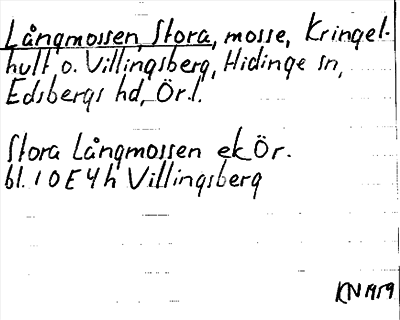 Långmossen, Stora, mosse, Kringel-
hult o. Villingsberg, Hidinge sn,
Edsbergs hd, Ör.l.
Stora Långmossen ek Ör.
bl. 10E4h Villingsberg
KN 1959